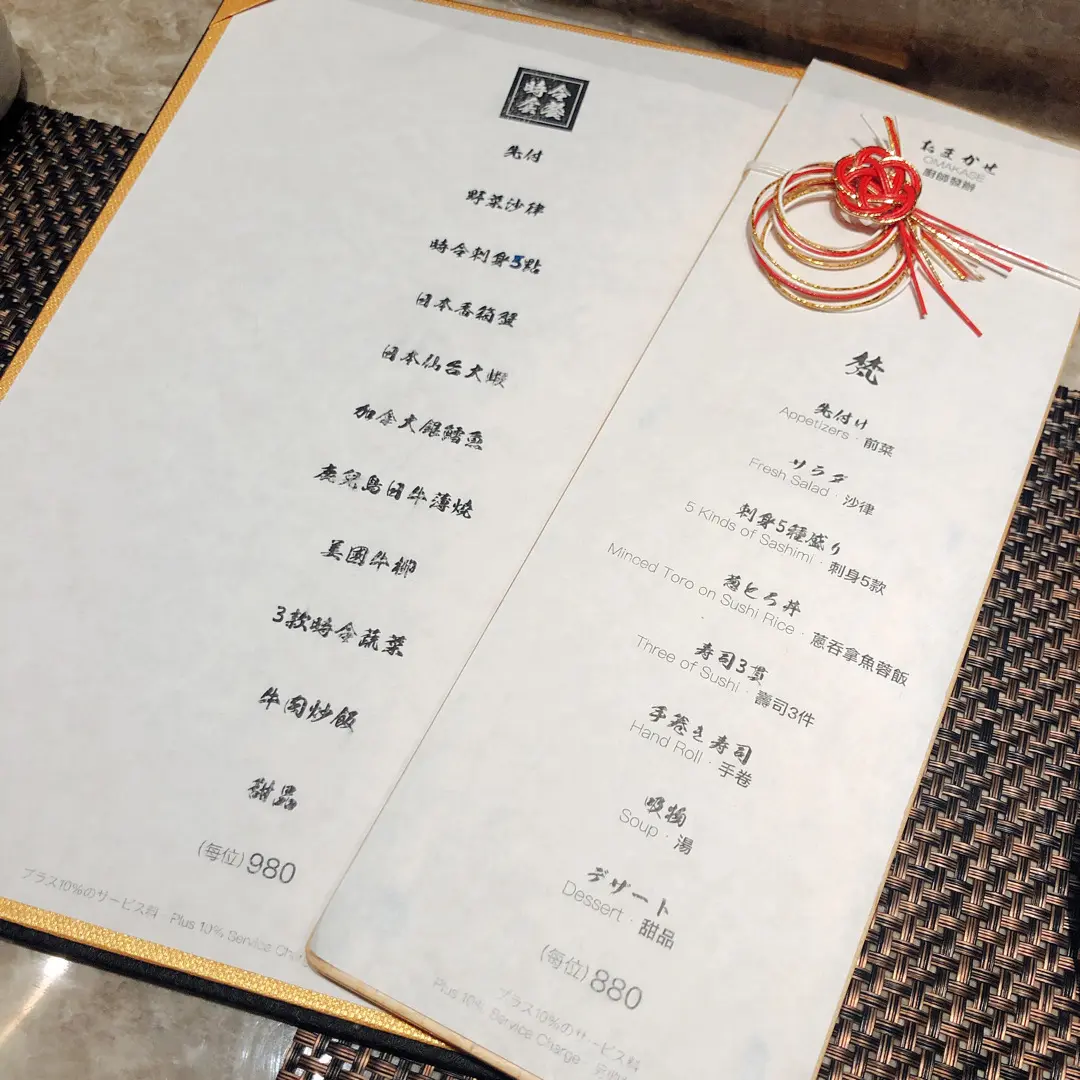 時令
套餐
先付
野菜沙律
時令刺身3點
日本香箱蟹
日本仙台大蝦
加拿大銀鱈魚
鹿兒島日牛薄燒
美國牛柳
3款時令蔬菜
牛肉炒飯
甜品
(每位)980
プラス10%のサービス料 Plus 10% Service
おまかせ
OMAKASE
廚師發辦
梵
先付け
Appetizers · 前菜
サラダ
Fresh Salad · 沙律
刺身5種盛り
5 Kinds of Sashimi · 刺身5款
葱とろ丼
Minced Toro on Sushi Rice · 蔥吞拿魚蓉飯
寿司3貫
Three of Sushi · 壽司3件
手巻き寿司
Hand Roll · 手卷
吸物
Soup · 湯
デザート
Dessert · 甜品
(每位)880
プラス10%のサービス料
Plus 10% Service Charge